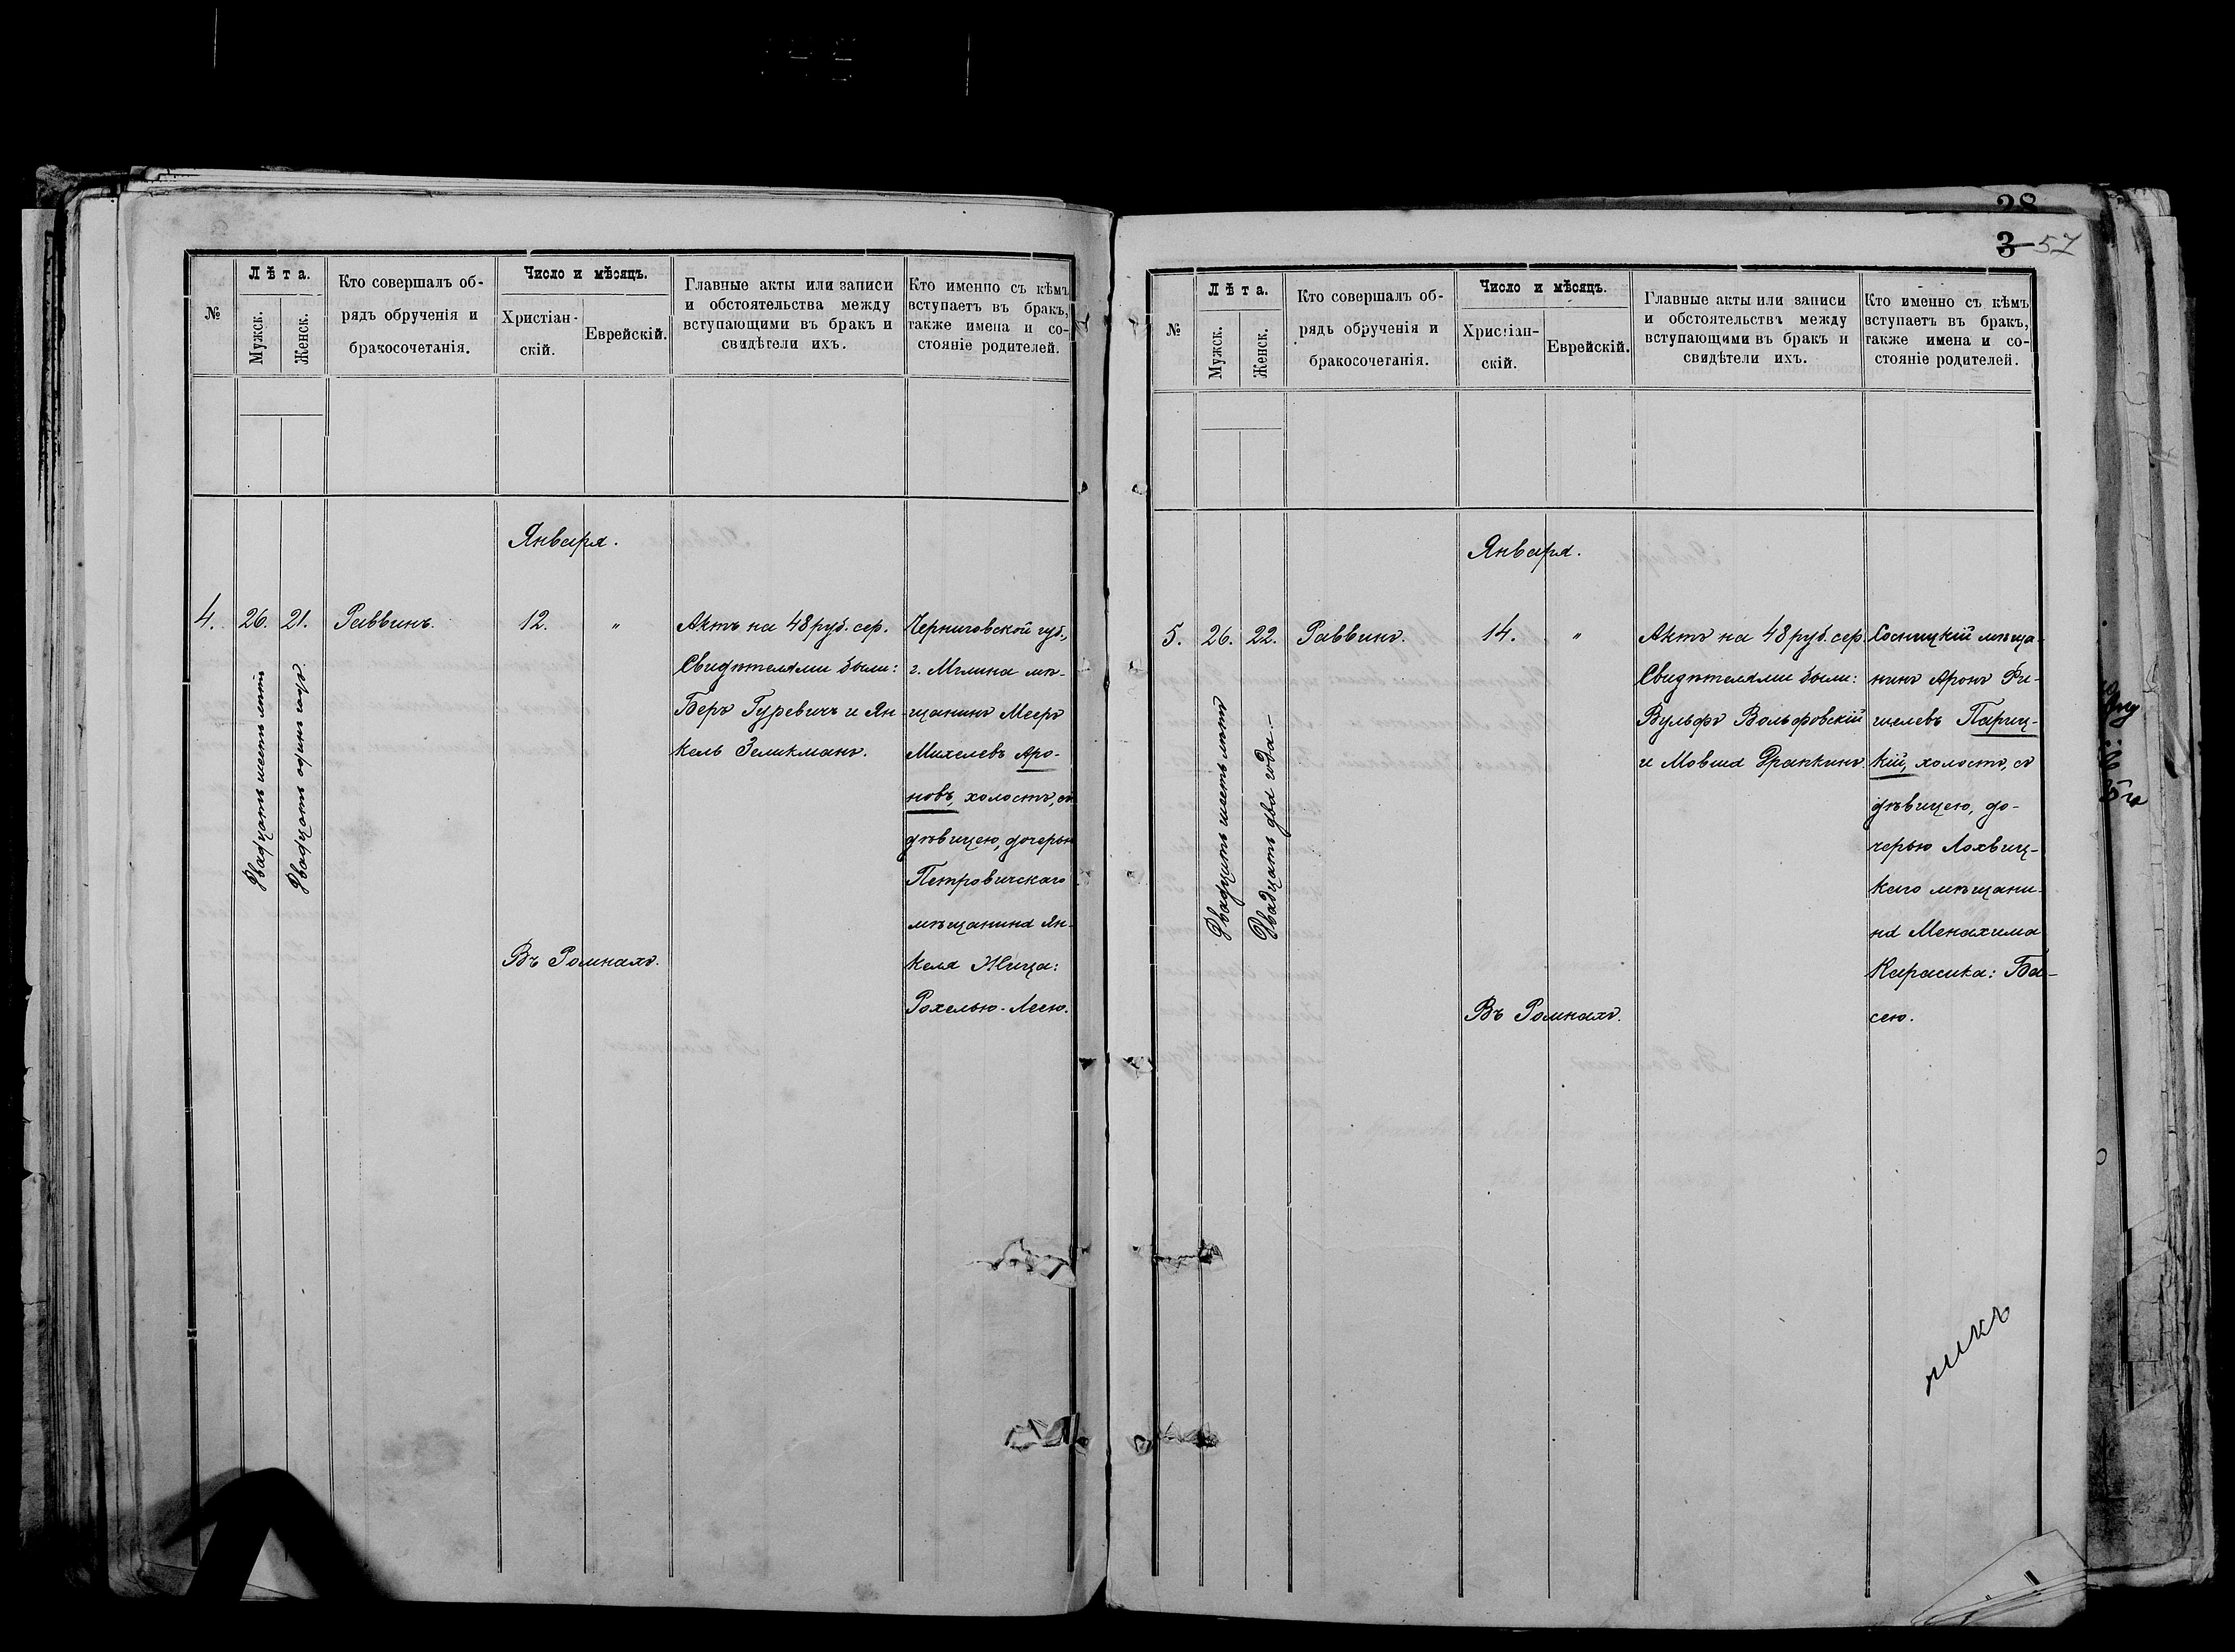 №
Лѣта.
Мужск.
Женск.
Кто совершалъ об-
рядъ обрученія и
бракосочетанія.
Число и мѣсяцъ.
Христіан-
скій.
Еврейскій.
Главные акты или записи
и обстоятельства между
вступающими въ бракъ и
свидѣтели ихъ.
Кто именно съ кѣмъ
вступаетъ въ бракъ,
также имена и со-
стояніе родителей.
Января.
4.
26.
Двадцать шесть лѣтъ
21.
Двадцать одинъ годъ
Раввинъ.
12.
"
Въ Ромнахъ.
Актъ на 48 руб. сер.
Свидѣтелями были:
Беръ Гуревичъ и Ян-
кель Зеликманъ.
Черниговской губ.,
г. Мглина мѣ-
щанинъ Мееръ
Михелевъ Аро-
новъ, холостъ, съ
дѣвицею, дочерью
Петровичскаго
мѣщанина Ян-
келя Жица:
Рохелью-Леею.
28
3 57
№
Лѣта.
Мужск.
Женск.
Кто совершалъ об-
рядъ обрученія и
бракосочетанія.
Число и мѣсяцъ.
Христіан-
скій.
Еврейскій.
Главные акты или записи
и обстоятельства между
вступающими въ бракъ и
свидѣтели ихъ.
Кто именно съ кѣмъ
вступаетъ въ бракъ,
также имена и со-
стояніе родителей.
Января.
5.
26.
Двадцать шесть лѣтъ
22.
Двадцать два года.
Раввинъ.
14.
"
Въ Ромнахъ.
Актъ на 48 руб. сер.
Свидѣтелями были:
Вульфъ Вольфовскій
и Мовша Драпкинъ.
мѣща-
нинъ Аронъ Фи-
шелевъ Париц-
кій, холостъ, съ
дѣвицею, до-
черью Лохвиц-
каго мѣщани-
на Менахима
Карасика: Ба-
сею.